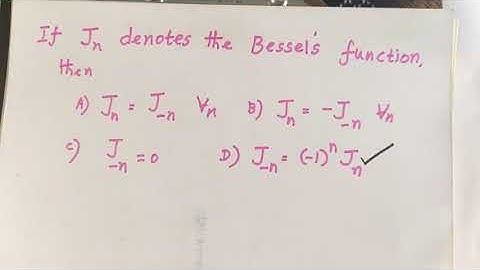 If Jn denotes the Bessel's function,
then
A) Jn = J-n ∀n B) Jn = -J-n ∀n
C) J-n = 0 D) J-n = (-1)^n Jn ✓